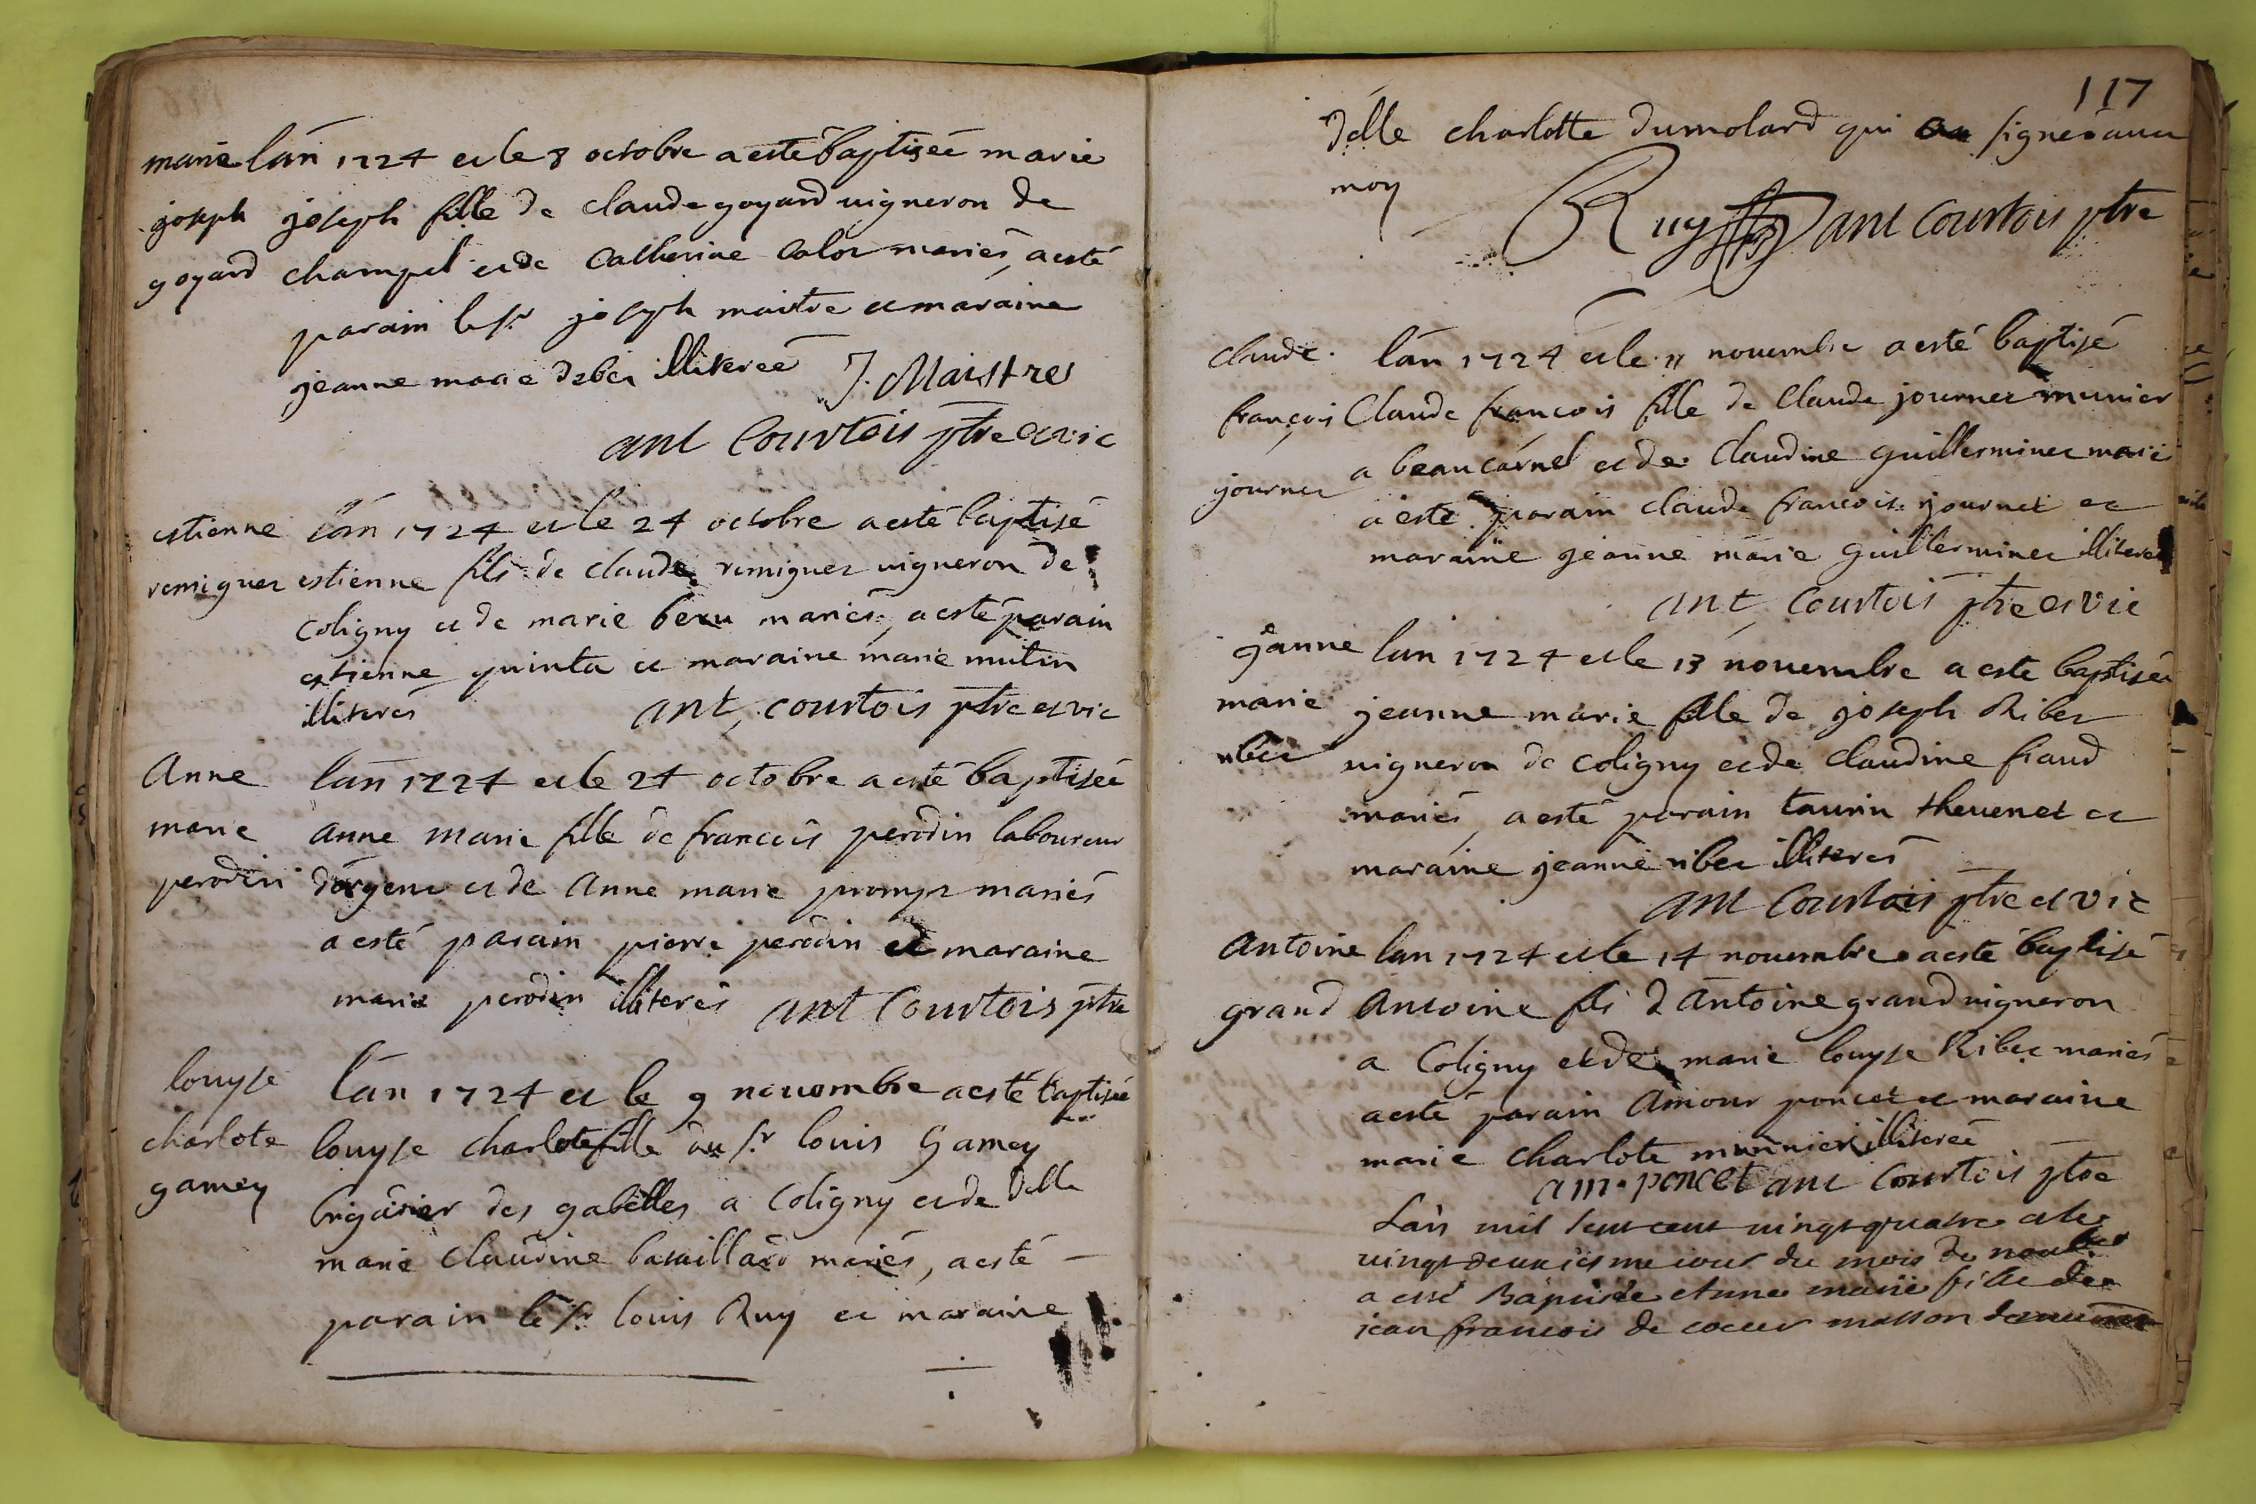 marie lan 1724 et le 8 octobre a esté baptiseé marie
joseph joseph fille de claude goyard uigneron de
goyard champel et de Catherine Colot mariés, a esté
parain le sr joseph maitre et maraine
jeanne marie illitereé J. Maistres
ant Courtois ptre et vic
estienne lan 1724 et le 24 octobre a esté baptisé
remiguet estienne fils de claude remiguet uigneron de
coligny et de marie mariés, a esté parain
estienne et maraine marie mutin
illiterés ant, courtois ptre et vic
Anne lan 1724 et le 24 octobre a esté baptiseé
marie anne marie fille de francois perodin laboureur
perodin et de Anne marie mariés
a esté parain pierre perodin et maraine
marie perodin illiterés ant Courtois ptre
louyse lan 1724 et le 9 nouembre a esté baptiseé
charlote louyse charlote fille du sr louis Gamey
gamey brigadier des gabelles a Coligny et de dlle
marie claudine mariés, a esté
parain le sr louis Ruy et maraine
117
delle charlotte dumolard qui signés auec
moy
Ruy ant Courtois ptre
claude lan 1724 et le 11 nouembre a esté baptisé
françois Claude francois fille de Claude journet munier
journet a beaucarnel et de Claudine guillerminet mariés
a esté parain claude francois journet et
maraine jeanne marie guillerminet illiterés
ant Courtois ptre et vic
jeanne lan 1724 et le 13 nouembre a este baptiseé
marie jeanne marie fille de joseph Ribet
ribet uigneron de coligny et de claudine
mariés, a esté parain taurin theuenet et
maraine jeanne ribet illiterés
ant Courtois ptre et vic
Antoine lan 1724 et le 14 nouembre a esté baptisé
grand Antoine fils d Antoine grand uigneron
a Coligny et de marie louyse Ribet mariés
a esté parain Amour poncet et maraine
marie charlote munnier illitereé
am. poncet ant Courtois ptre
Lan mil sept cent uingt quatre et le
uingt deuxieme iour du mois de
a esté Baptisée marie fille de
jean francois de coeur masson